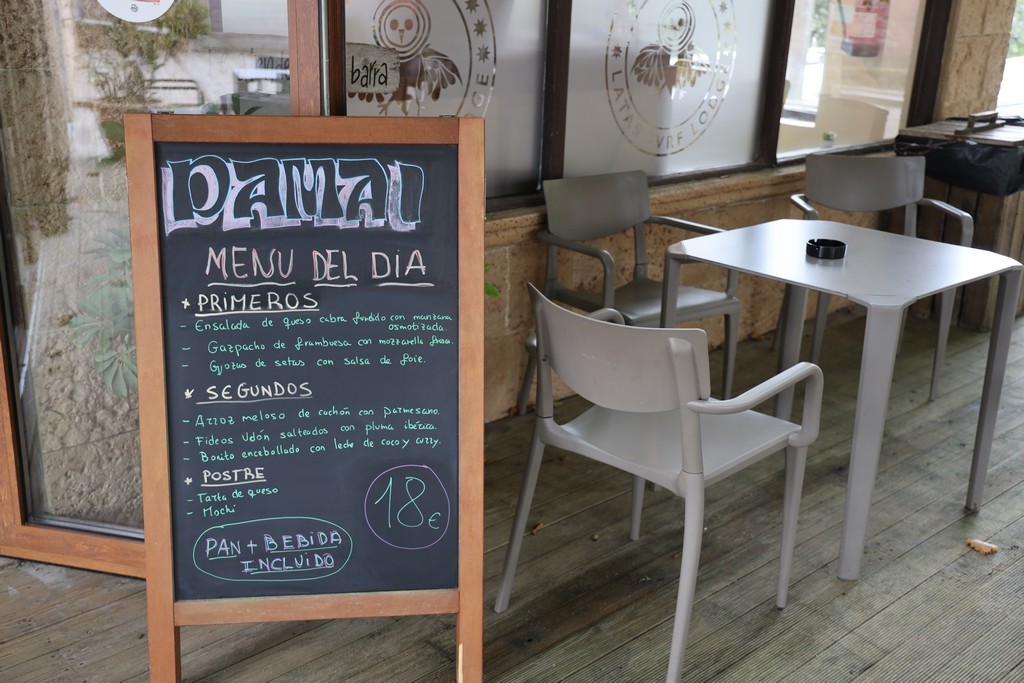 barra
LATAS SURF LODGE
DAMA
MENU DEL DIA
* PRIMEROS
- Ensalada de queso cabra fundido con manzana
osmotizada.
- Gazpacho de frambuesa con mozzarella fresca.
- Gyozas de setas con salsa de foie.
* SEGUNDOS
- Arroz meloso de cachón con parmesano.
- Fideos Udón salteados con pluma ibérica.
- Bonito encebollado con leche de coco y curry.
* POSTRE
- Tarta de queso
- Mochi
18€
PAN + BEBIDA
INCLUIDO